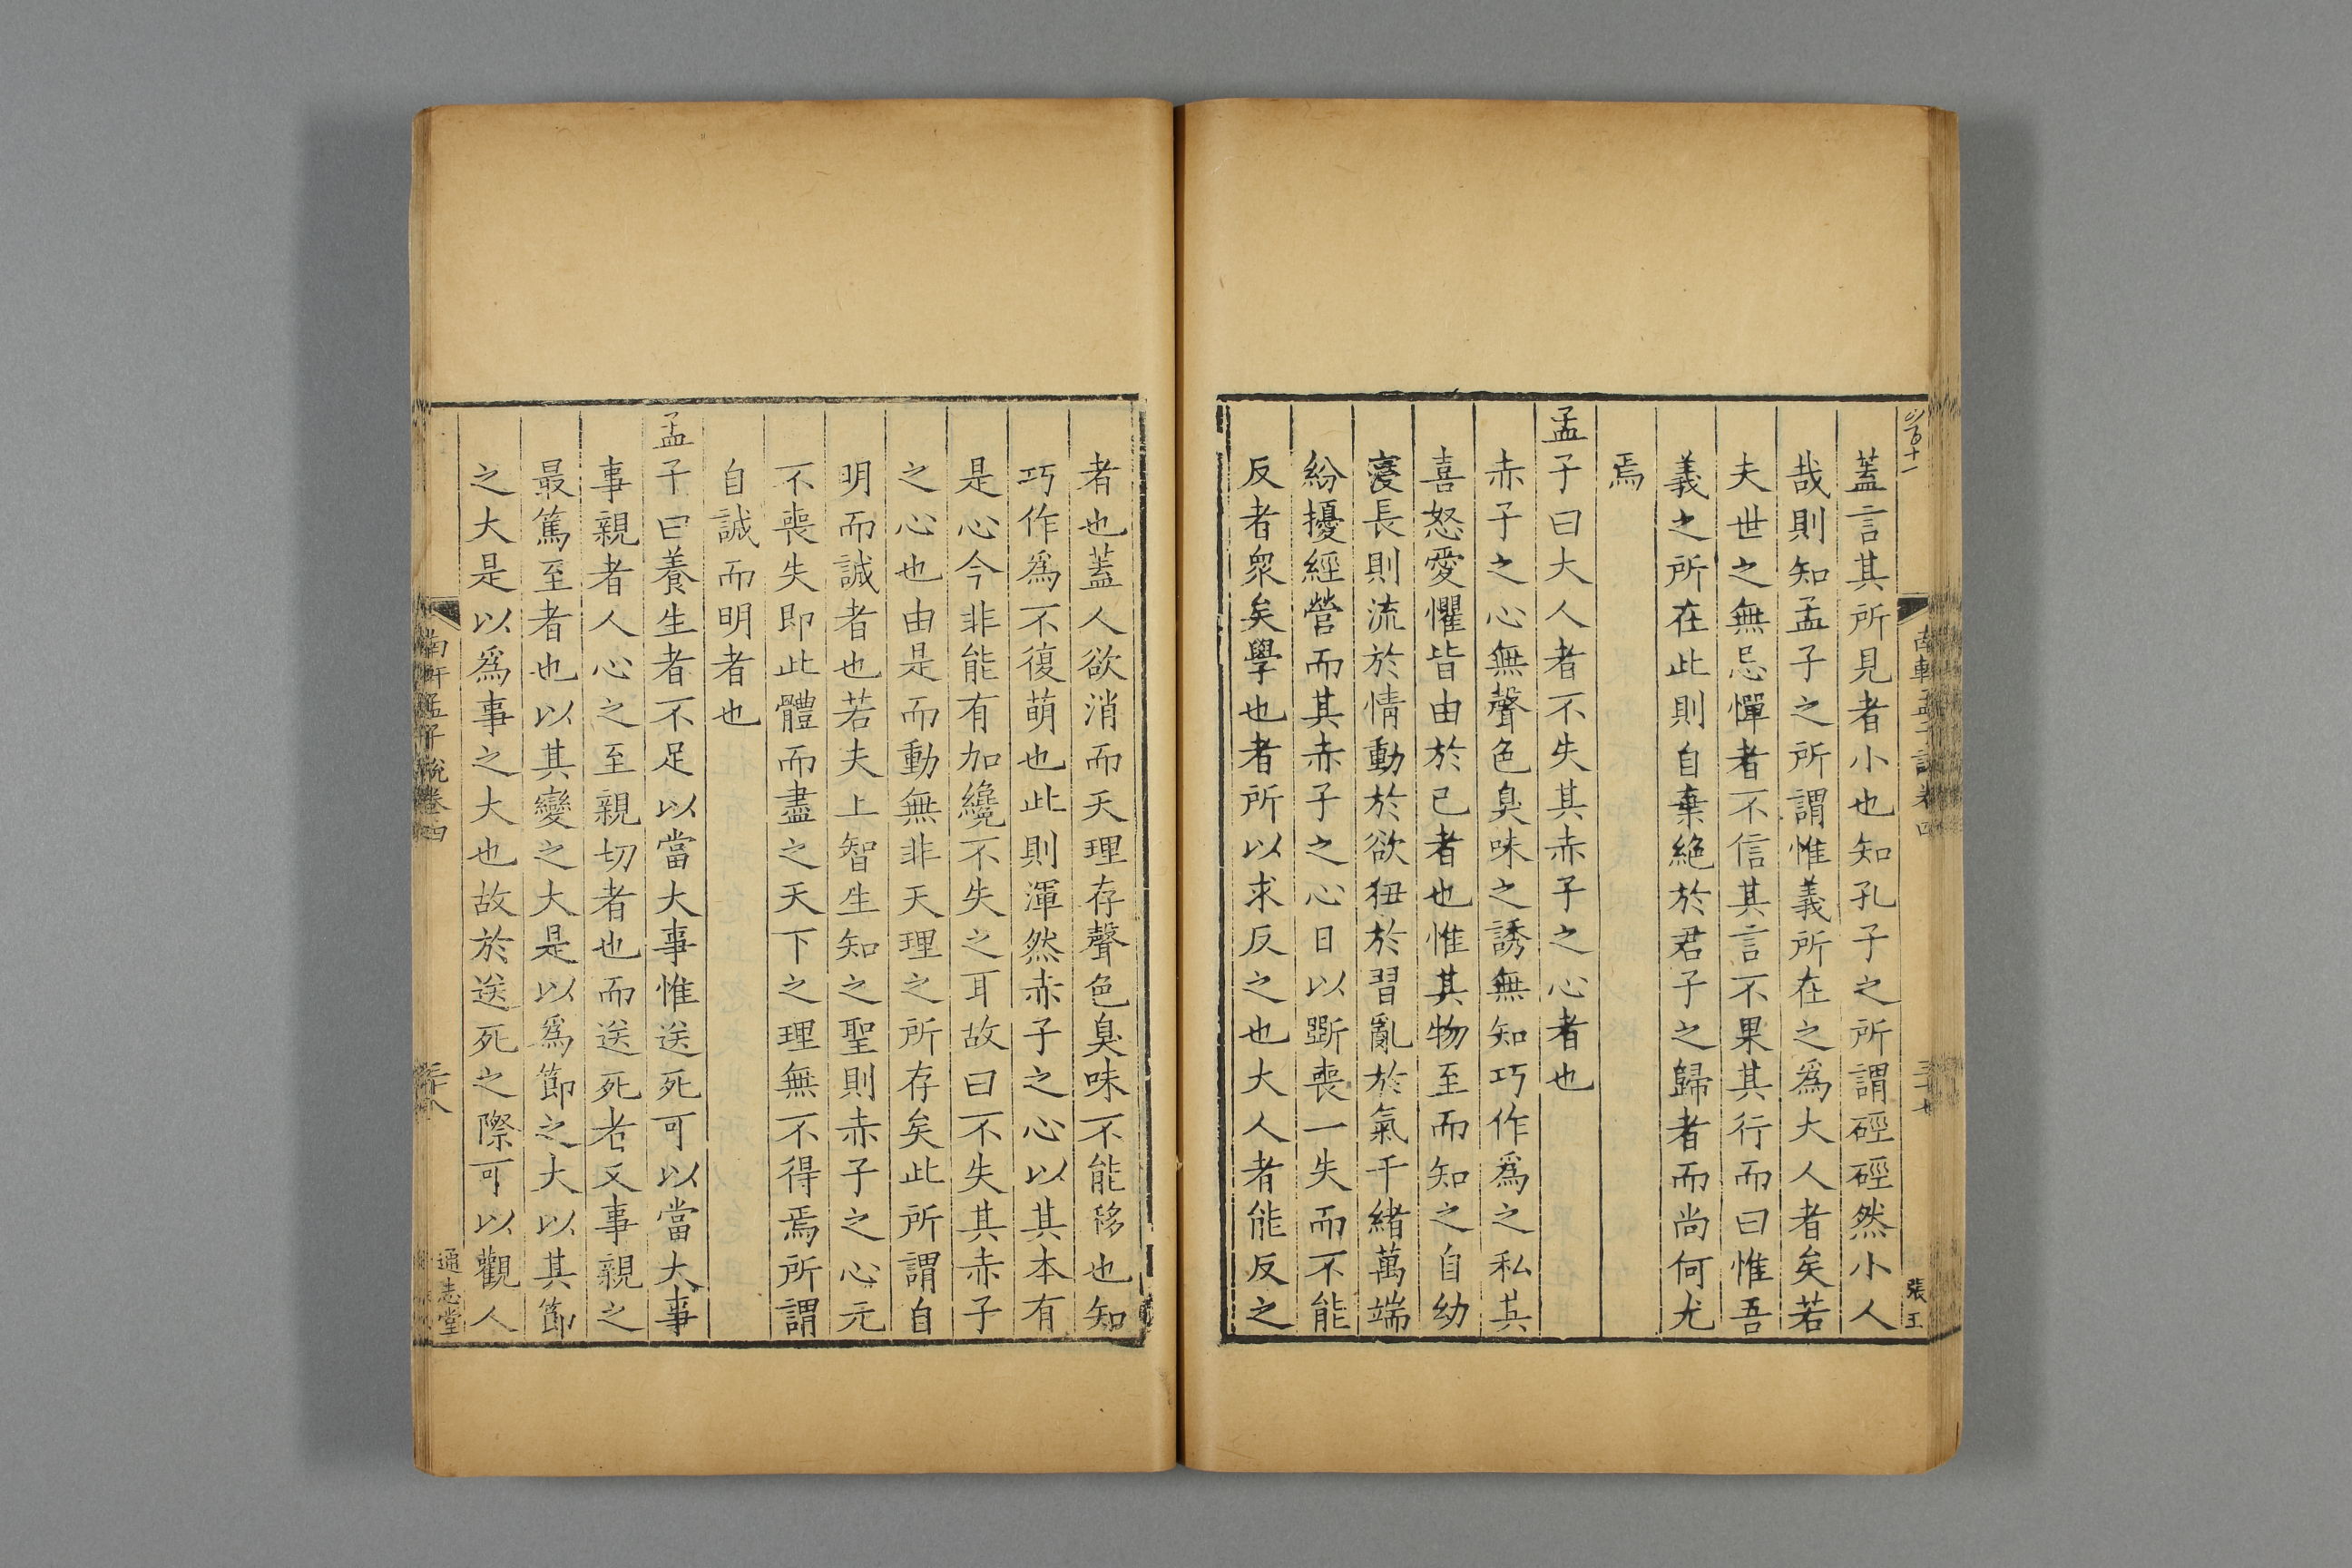 蓋言其所見者小也知孔子之所謂硜硜然小人
哉則知孟子之所謂惟義所在之爲大人者矣若
夫世之無忌憚者不信其言不果其行而曰惟吾
義之所在此則自棄絶於君子之歸者而尚何尤
焉
孟子曰大人者不失其赤子之心者也
赤子之心無聲色臭味之誘無知巧作爲之私其
喜怒愛懼皆由於已者也惟其物至而知之自幼
寖長則流於情動於欲狃於習亂於氣千緒萬端
紛擾經營而其赤子之心日以斲喪一失而不能
反者衆矣學也者所以求反之也大人者能反之
張玉
者也蓋人欲消而天理存聲色臭味不能移也知
巧作爲不復萌也此則渾然赤子之心以其本有
是心今非能有加纔不失之耳故曰不失其赤子
之心也由是而動無非天理之所存矣此所謂自
明而誠者也若夫上智生知之聖則赤子之心元
不喪失即此體而盡之天下之理無不得焉所謂
自誠而明者也
孟子曰養生者不足以當大事惟送死可以當大事
事親者人心之至親切者也而送死者又事親之
最篤至者也以其變之大是以爲節之大以其節
之大是以爲事之大也故於送死之際可以觀人
南軒孟子說卷四
三十八
通志堂